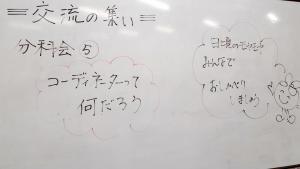 交流の集い
分科会⑤
コーディネーターって
何だろう
日頃のモヤモヤ
みんなで
おしゃべり
しましょう